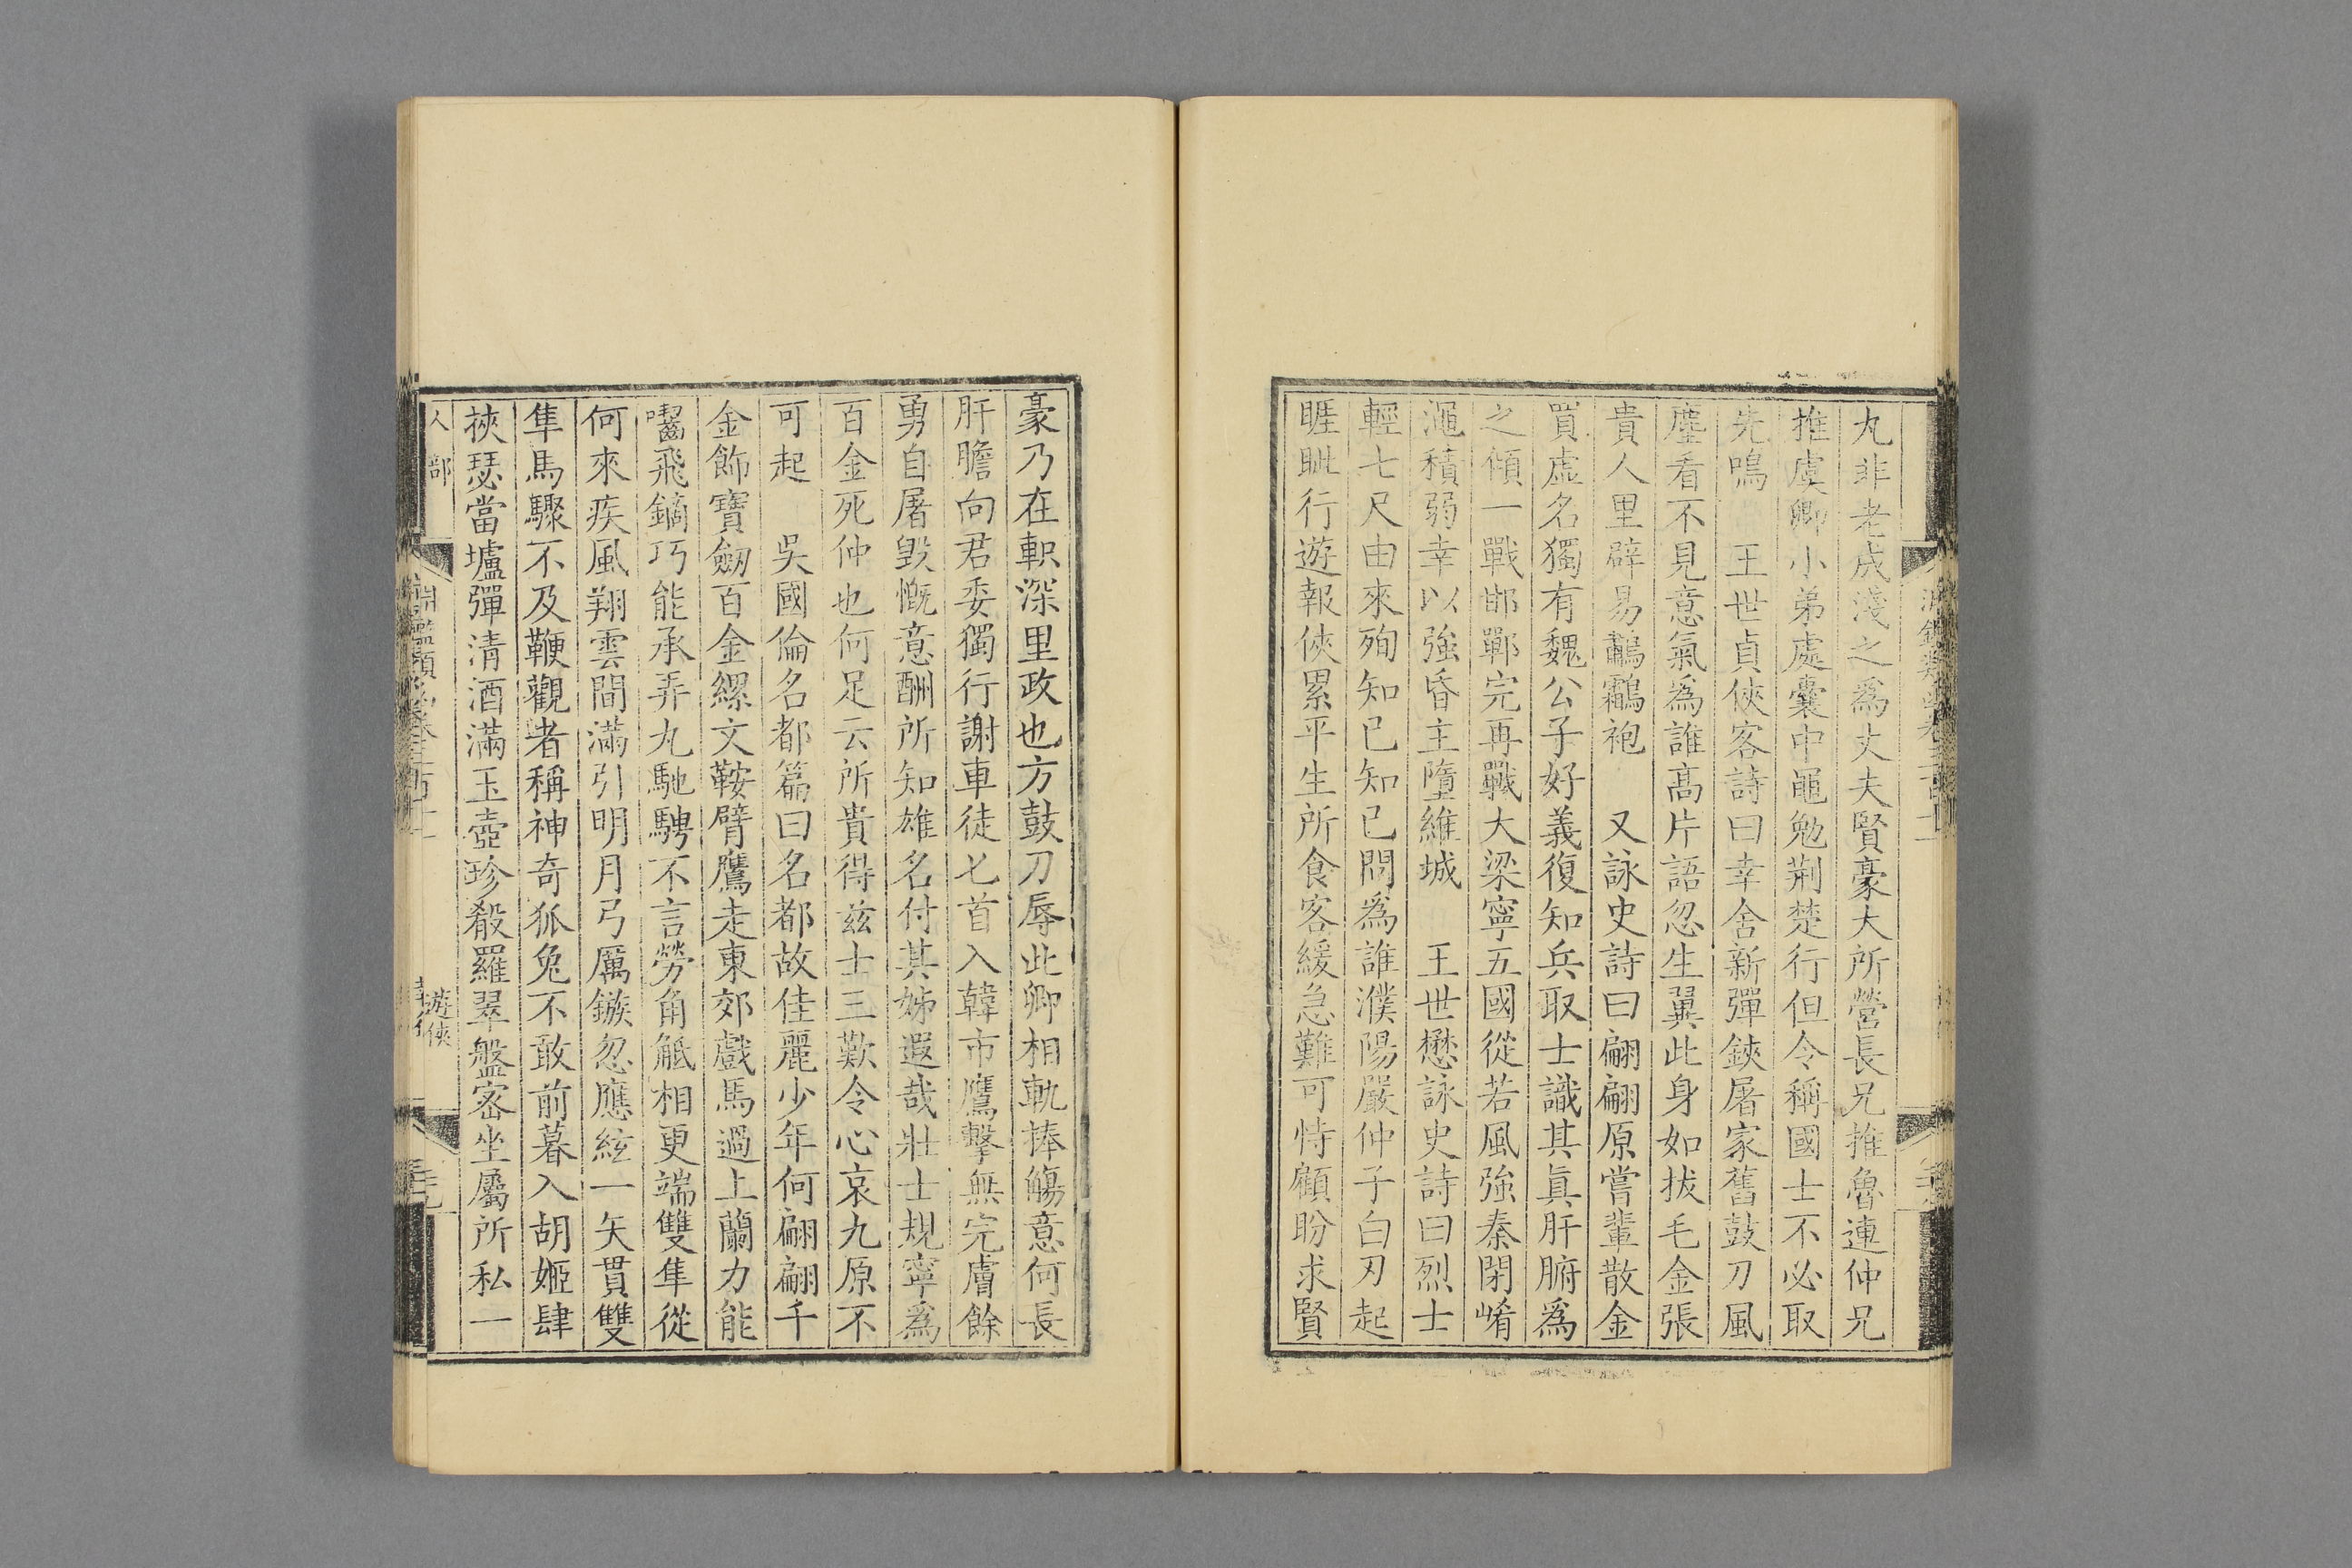 丸非老成淺之爲丈夫賢豪大所營長兄推魯連仲兄
推虞卿小弟處囊中黽勉荆楚行但令稱國士不必取
先鳴　王世貞俠客詩曰幸舍新彈鋏屠家舊鼓刀風
塵看不見意氣爲誰髙片語忽生翼此身如拔毛金張
貴人里辟易鷫鸘袍　又詠史詩曰翩翩原嘗輩散金
買虛名獨有魏公子好義復知兵取士識其眞肝腑爲
之傾一戰邯鄲完再戰大梁寧五國從若風強秦閉崤
澠積弱幸以強昏主墮維城　王世懋詠史詩曰烈士
輕七尺由來殉知已知已問爲誰濮陽嚴仲子白刃起
睚眦行遊報俠累平生所食客緩急難可恃顧盼求賢
豪乃在軹深里政也方鼓刀辱此卿相軌捧觴意何長
肝膽向君委獨行謝車徒匕首入韓市鷹擊無完膚餘
勇自屠毀慨意酬所知雄名付其姊遐哉壯士規寧爲
百金死仲也何足云所貴得兹士三歎令心哀九原不
可起　吳國倫名都篇曰名都故佳麗少年何翩翩千
金飾寶劒百金縲文鞍臂鷹走東郊戲馬過上蘭力能
囓飛鏑巧能承弄丸馳騁不言勞角觝相更端雙隼從
何來疾風翔雲間滿引明月弓厲鏃忽應絃一矢貫雙
隼馬驟不及鞭觀者稱神奇狐兔不敢前暮入胡姬肆
挾瑟當壚彈清酒滿玉壺珍殽羅翠盤密坐屬所私一
人部
淵鑑類函卷三百十一
遊俠